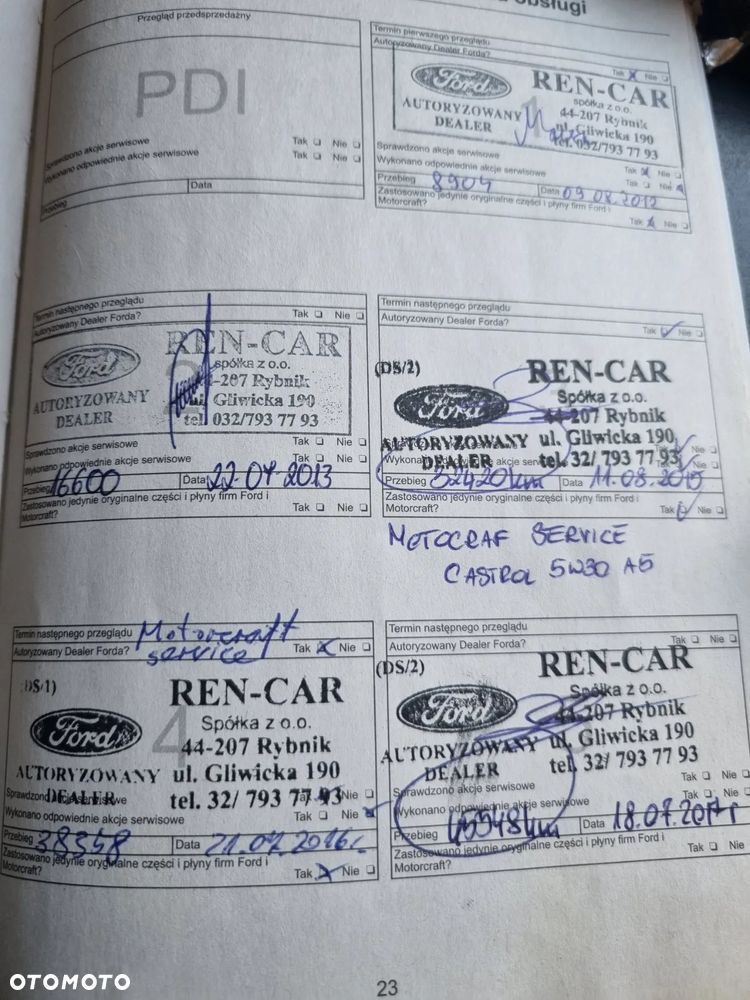 obsługi
Przegląd przedsprzedażny
PDI
Sprawdzono akcje serwisowe Tak Nie
Wykonano odpowiednie akcje serwisowe Tak Nie
Przebieg Data
Termin pierwszego przeglądu
Autoryzowany Dealer Forda? Tak Nie
Ford REN-CAR
spółka z o.o.
AUTORYZOWANY 44-207 Rybnik
DEALER ul. Gliwicka 190
tel. 032/793 77 93
Sprawdzono akcje serwisowe Tak Nie
Wykonano odpowiednie akcje serwisowe Tak Nie
Przebieg 8904 Data 09.08.2012
Zastosowano jedynie oryginalne części i płyny firm Ford i
Motorcraft? Tak Nie
Termin następnego przeglądu
Autoryzowany Dealer Forda? Tak Nie
2
Ford REN-CAR
spółka z o.o.
-207 Rybnik
AUTORYZOWANY ul. Gliwicka 190
DEALER tel. 032/793 77 93
Sprawdzono akcje serwisowe Tak Nie
Wykonano odpowiednie akcje serwisowe Tak Nie
Przebieg 16600 Data 22.07.2013
Zastosowano jedynie oryginalne części i płyny firm Ford i
Motorcraft? Tak Nie
Termin następnego przeglądu
Autoryzowany Dealer Forda? Tak Nie
(DS/2) REN-CAR
Ford Spółka z o.o.
44-207 Rybnik
AUTORYZOWANY ul. Gliwicka 190
DEALER tel. 32/ 793 77 93
Przebieg 32420km Data 11.08.2015
Zastosowano jedynie oryginalne części i płyny firm Ford i
Motorcraft? Tak Nie
MOTOCRAF SERVICE
CASTROL 5W30 A5
Termin następnego przeglądu Motorcraft
Autoryzowany Dealer Forda? service Tak Nie
DS/1) REN-CAR
4
Ford Spółka z o.o.
44-207 Rybnik
AUTORYZOWANY ul. Gliwicka 190
DEALER tel. 32/ 793 77 93
Sprawdzono akcje serwisowe Tak Nie
Wykonano odpowiednie akcje serwisowe Tak Nie
Przebieg 38358 Data 21.07.2016r.
Zastosowano jedynie oryginalne części i płyny firm Ford i
Motorcraft? Tak Nie
Termin następnego przeglądu
Autoryzowany Dealer Forda? Tak Nie
(DS/2) REN-CAR
Ford Spółka z o.o.
44-207 Rybnik
AUTORYZOWANY ul. Gliwicka 190
DEALER tel. 32/ 793 77 93
Sprawdzono akcje serwisowe Tak Nie
Wykonano odpowiednie akcje serwisowe Tak Nie
Przebieg Data 18.07.2017r
Zastosowano jedynie oryginalne części i płyny firm Ford i
Motorcraft? Tak Nie
23
OTOMOTO